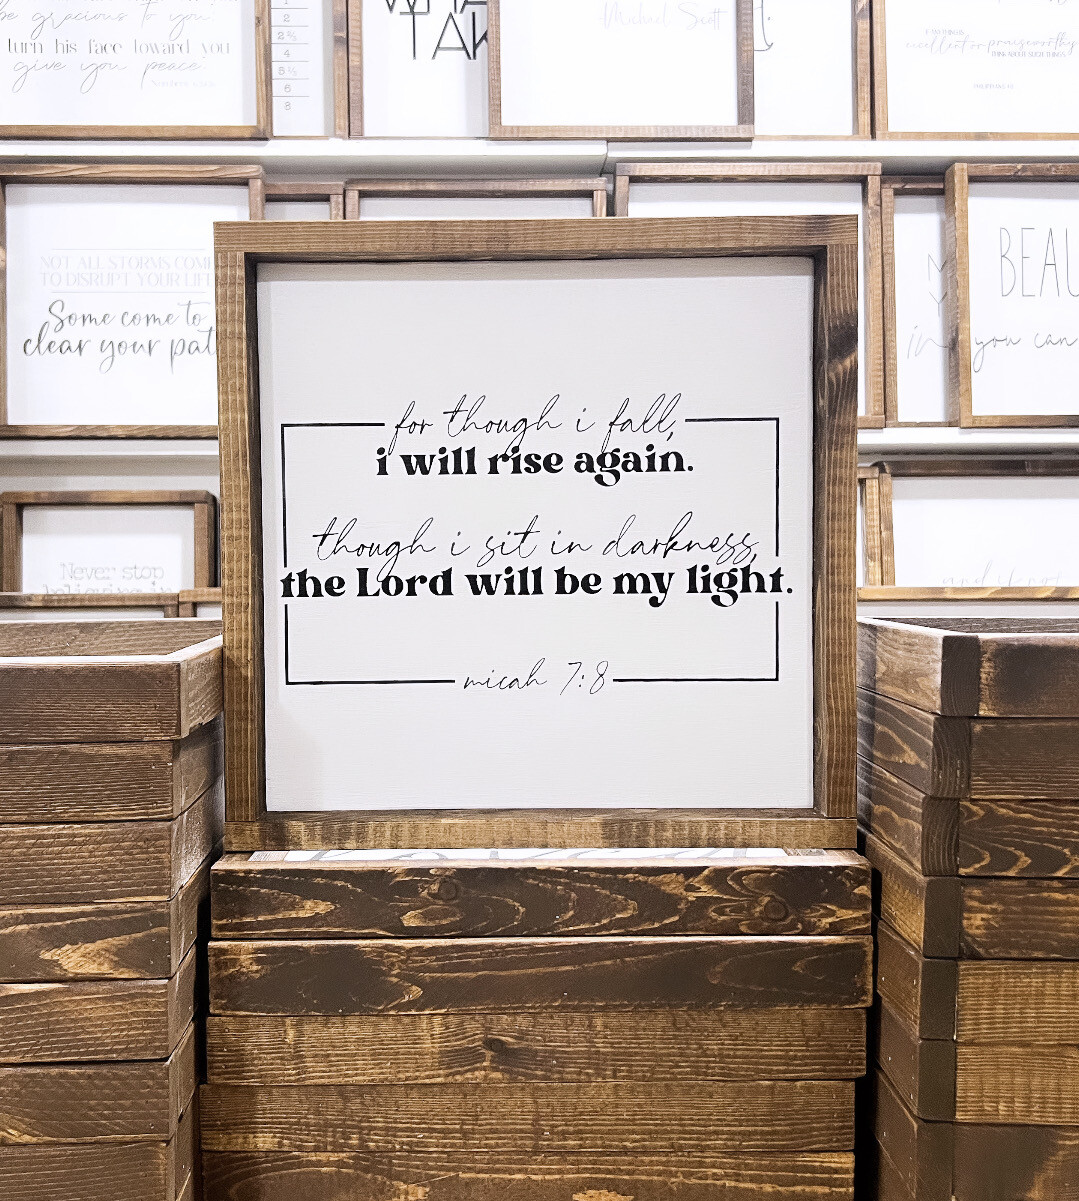 be gracious to you.
turn his face toward you
give you peace.
1
2
2½
4
5½
6
8
TAK
Michael Scott
excellent or praiseworthy
THINK ABOUT SUCH THINGS.
NOT ALL STORMS COME
TO DISRUPT YOUR LIFE
Some come to
clear your pat
BEAU
in you can
for though i fall,
i will rise again.
though i sit in darkness,
the Lord will be my light.
micah 7:8
Never stop
believing in